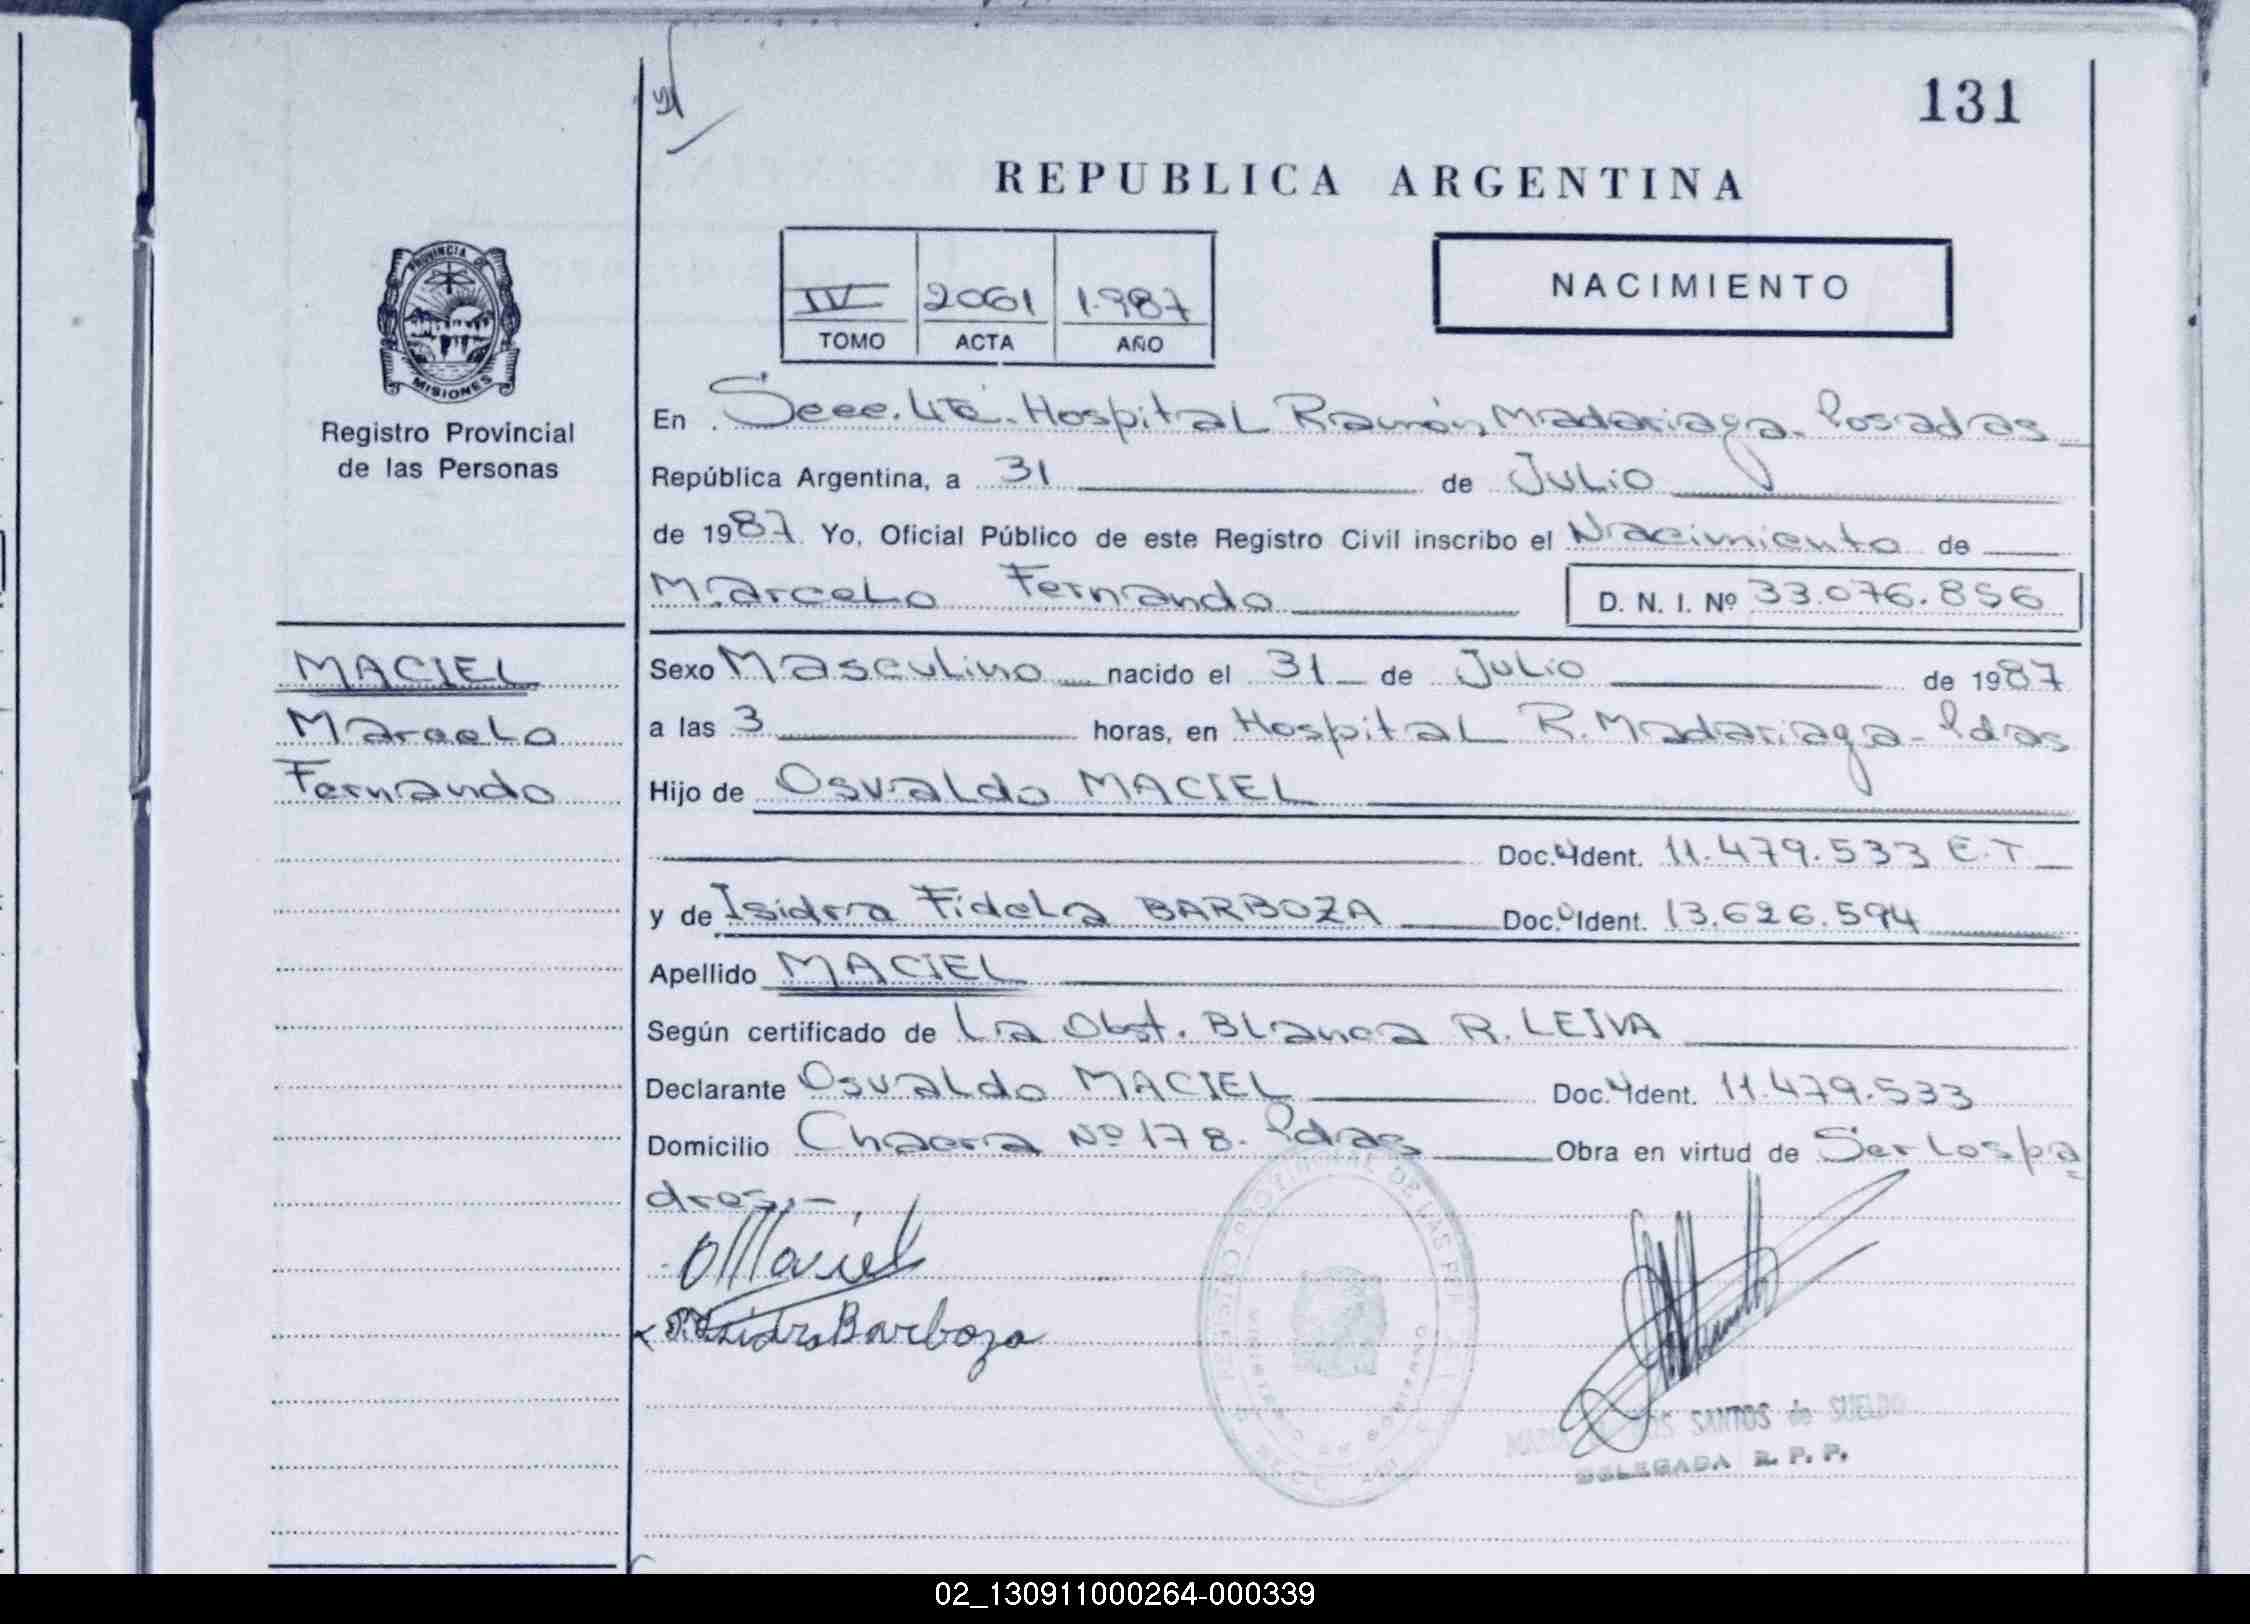 131
REPUBLICA ARGENTINA
IV 2061 1.987
TOMO ACTA AÑO
NACIMIENTO
PROVINCIA DE
MISIONES
Registro Provincial
de las Personas
En Secc. 4ta. Hospital Ramón Madariaga. Posadas
República Argentina, a 31 de Julio
de 1987 Yo, Oficial Público de este Registro Civil inscribo el Nacimiento de
Marcelo Fernando D. N. I. Nº 33.076.856
MACIEL
Marcelo
Fernando
Sexo Masculino nacido el 31 de Julio de 1987
a las 3 horas, en Hospital R. Madariaga - Pdas
Hijo de Osvaldo MACIEL
Doc. Ident. 11.479.533 E.T
y de Isidra Fidela BARBOZA Doc. Ident. 13.626.594
Apellido MACIEL
Según certificado de La Obst. Blanca R. LEIVA
Declarante Osvaldo MACIEL Doc. Ident. 11.479.533
Domicilio Chacra Nº 178. Pdas Obra en virtud de Ser los pa
dres.-
OMaciel
Isidra Barboza
SANTOS de SUELDO
DELEGADA R. P. P.
02_130911000264-000339